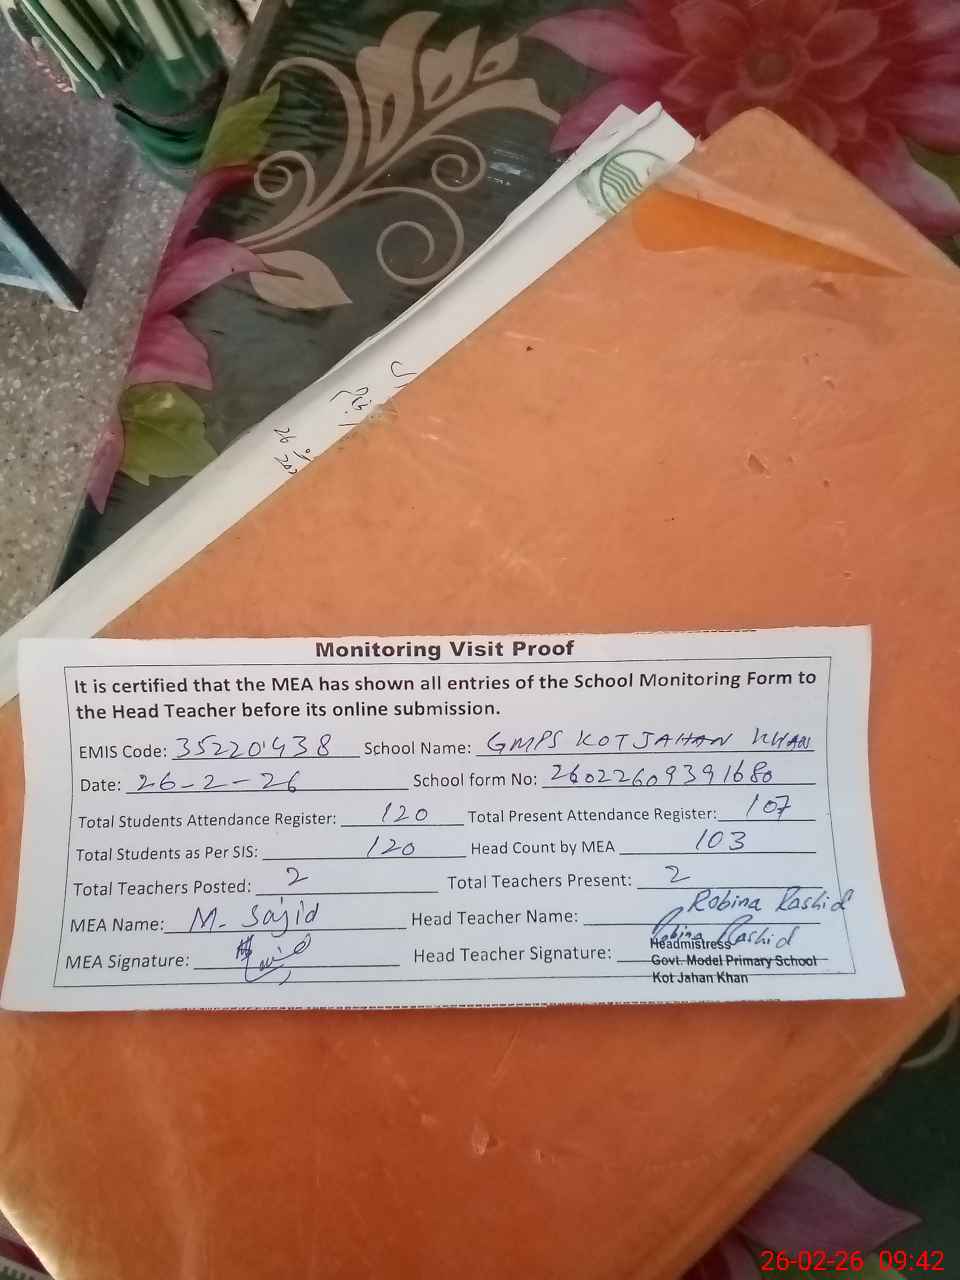 26
Monitoring Visit Proof
It is certified that the MEA has shown all entries of the School Monitoring Form to
the Head Teacher before its online submission.
EMIS Code: 35220438 School Name: GMPS KOT JAHAN KHAN
Date: 26-2-26 School form No: 26022609391680
Total Students Attendance Register: 120 Total Present Attendance Register: 107
Total Students as Per SIS: 120 Head Count by MEA 103
Total Teachers Posted: 2 Total Teachers Present: 2
MEA Name: M. Sajid Head Teacher Name: Robina Rashid
MEA Signature: Head Teacher Signature: Robina Rashid
Headmistress
Govt. Model Primary School
Kot Jahan Khan
26-02-26 09:42